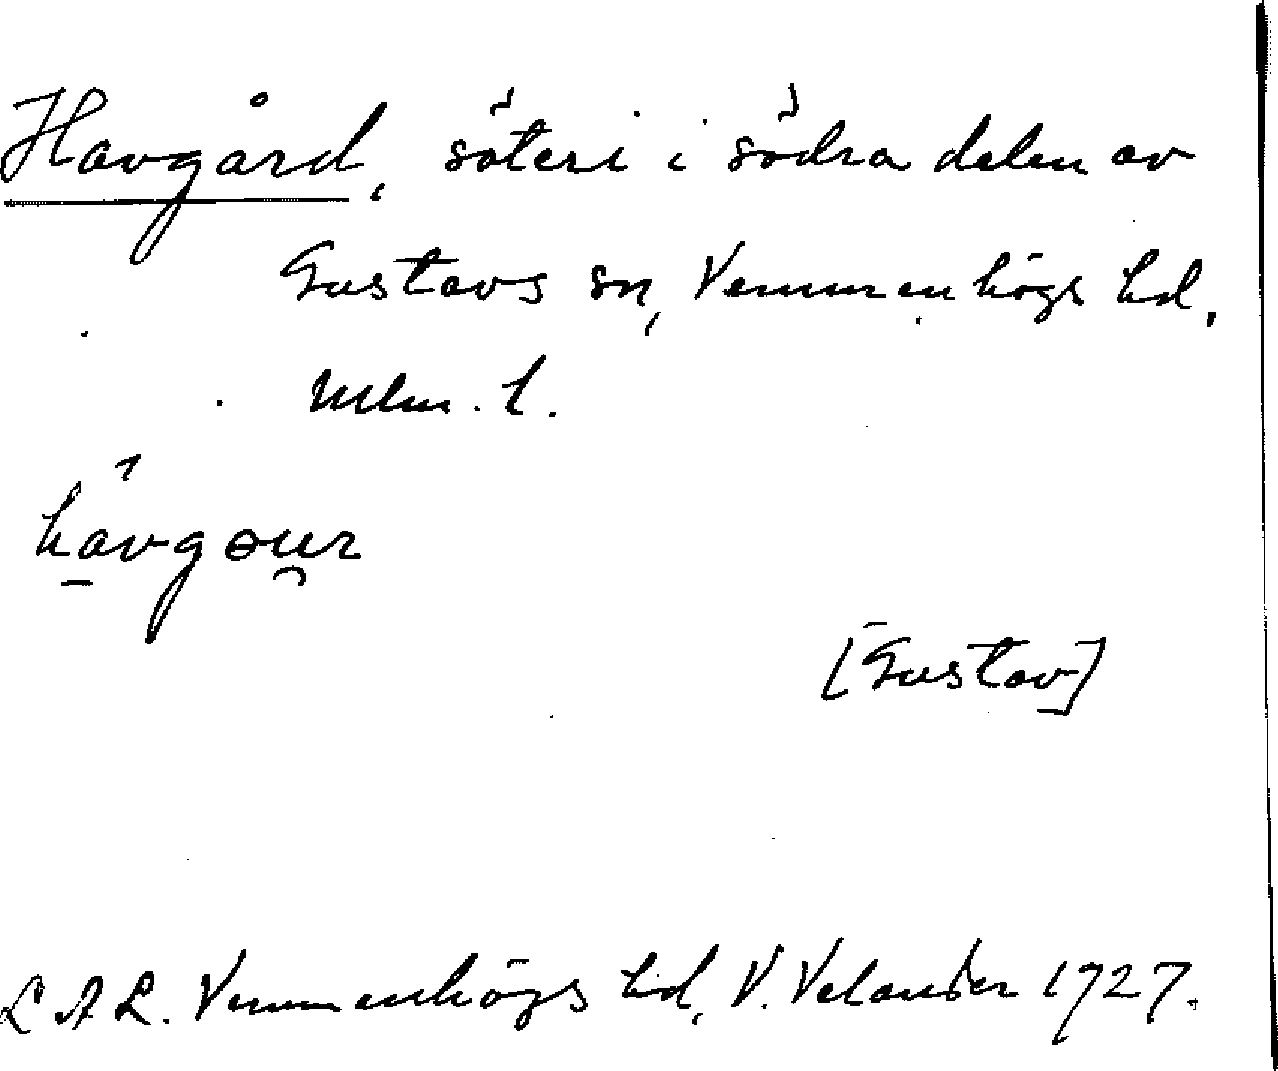 Havgård, säteri i södra delen av
Gustavs sn, Vemmenhögs hd,
Mlm. l.
hávgɵur
[Gustav]
L A L. Vemmenhögs hd, V. Velander 1927.